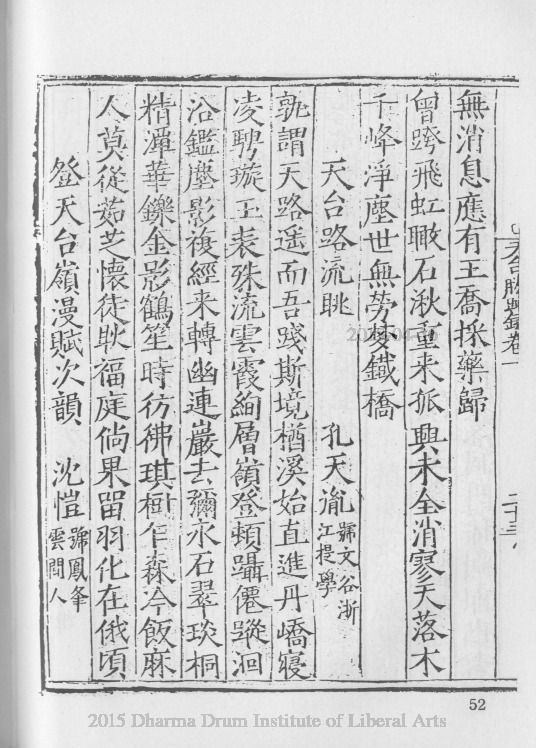 天台勝蹟錄卷一
二十三
無消息應有王喬採藥歸
曾跨飛虹瞰石湫重来孤興未全消寥天落木
千峰淨塵世無勞夢鐵橋
天台路流眺 孔天胤 號文谷浙江提學
孰謂天路遥而吾踐斯境楢溪始直進丹嶠寖
凌騁璇玉表殊流雲霞絢層嶺登頓躡僊蹤洄
沿鑑塵影複經来轉幽連巖去彌永石翠琰桐
精瀑華鑠金影鶴笙時彷彿琪樹乍森冷飯麻
人莫從茹芝懷徒耿福庭倘果留羽化在俄頃
登天台嶺漫賦次韻 沈愷 號鳳峯雲間人
52
2015 Dharma Drum Institute of Liberal Arts